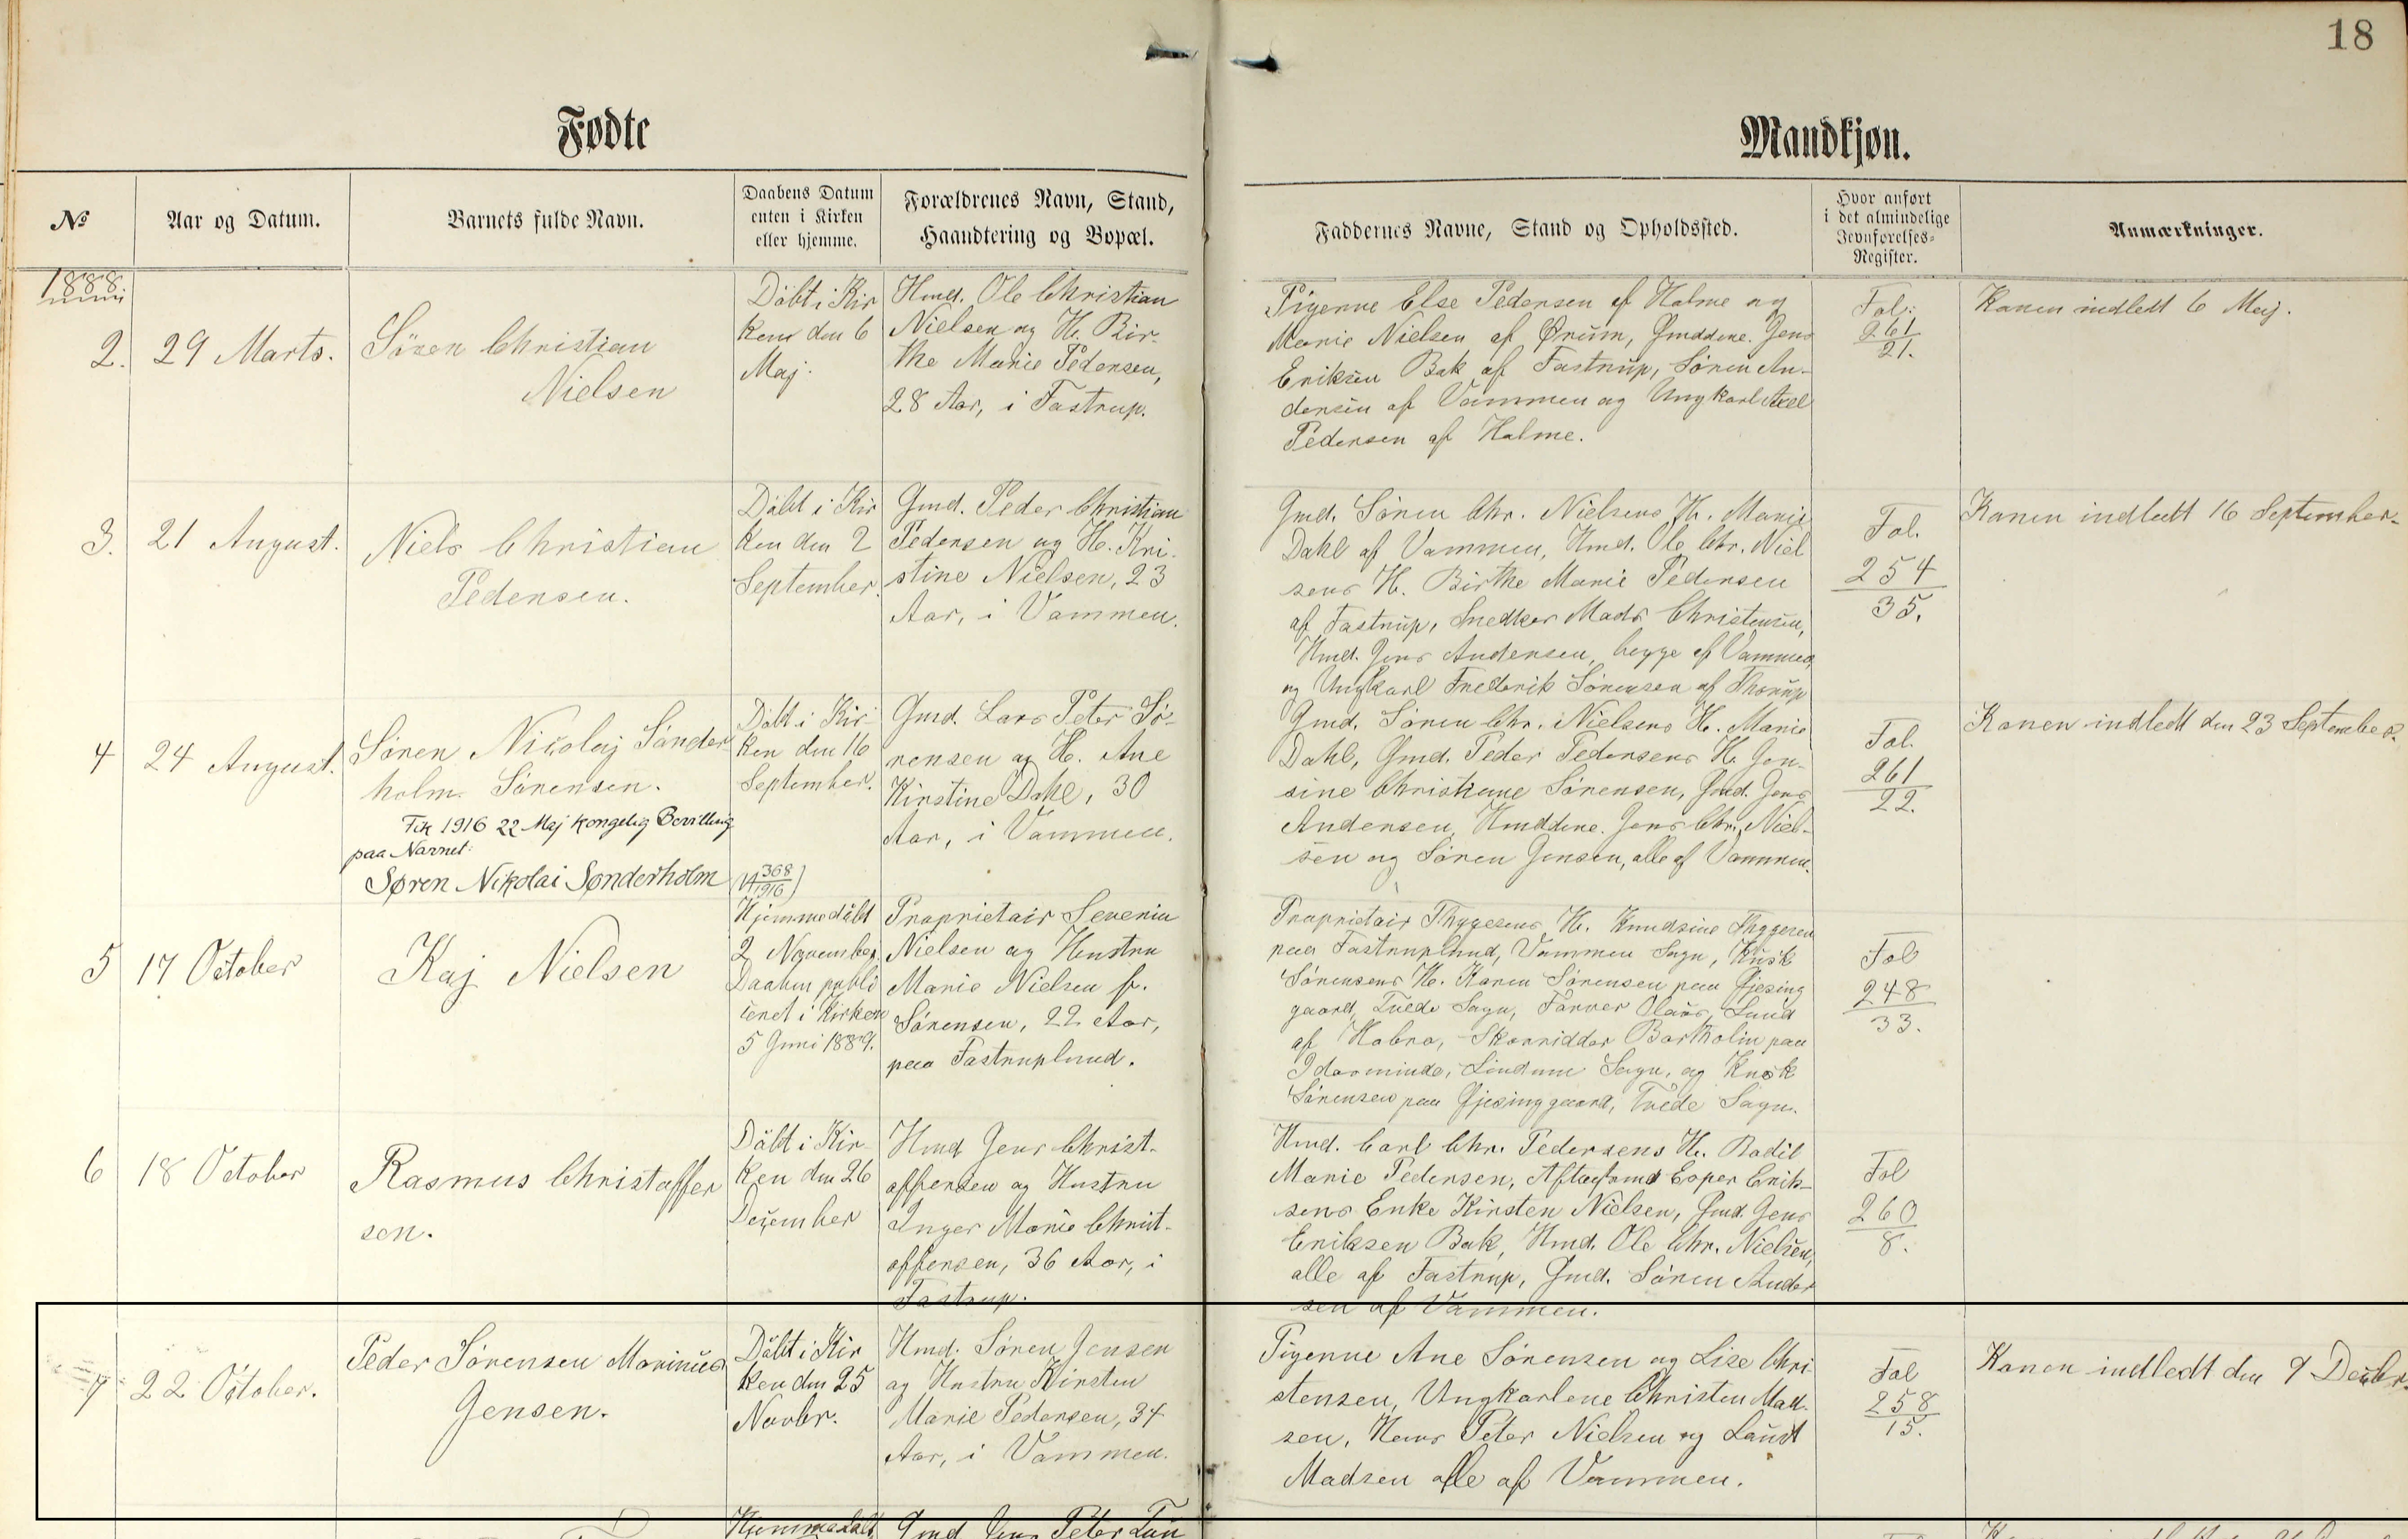 18
Fødte
Mandkjøn.
No
Aar og Datum.
Barnets fulde Navn.
Daabens Datum
enten i Kirken
eller hjemme.
Forældrenes Navn, Stand,
Haandtering og Bopæl.
Faddernes Navne, Stand og Opholdssted.
Hvor anført
i det almindelige
Jevnførelses-
Register.
Anmærkninger.
1888.
2.
29 Marts.
Sören Christian
Nielsen
Döbt i Kir
ken den 6
Maj.
Hmd. Ole Christian
Nielsen og H. Bir-
the Marie Pedersen,
28 Aar, i Fastrup.
Pigerne Else Pedersen af Halme og
Marie Nielsen af Ørum, Gmddene. Jens
Eriksen Bak af Fastrup, Sören An-
dersen af Vammen og Ungkarl Axel
Pedersen af Halme.
Fol:
261
21.
Konen indledt 6 Maj.
3.
21 August.
Niels Christian
Pedersen.
Döbt i Kir
ken den 2
September.
Gmd. Peder Christian
Pedersen og H. Kri-
stine Nielsen, 23
Aar, i Vammen.
Gmd. Sören Chr. Nielsens H. Marie
Dahl af Vammen, Hmd. Ole Chr. Niel
sens H. Birthe Marie Pedersen
af Fastrup, Snedker Mads Christensen,
Hmd. Jens Andersen, begge af Vammen
og Ungkarl Frederik Sörensen af Thorup
Fol.
254
35.
Konen indledt 16 September.
4
24 August.
Sören Nicolaj Sönder
holm Sörensen.
Fik 1916 22 Maj kongelig Bevilling
paa Navnet:
Søren Nikolai Sønderholm
368
1916)
Döbt i Kir-
ken den 16
September.
Gmd. Lars Peter Sö-
rensen og H. Ane
Kirstine Dahl, 30
Aar, i Vammen.
Gmd. Sören Chr. Nielsens H. Marie
Dahl, Gmd. Peder Pedersens H. Jen-
sine Christiane Sörensen, Gmd. Jens
Andersen, Hmddene. Jens Chr. Niel-
sen og Sören Jensen, alle af Vammen.
Fol.
261
22.
Konen indledt den 23 September.
5
17 October
Kaj Nielsen
Hjemmedöbt
2 November.
Daaben publi
ceret i Kirken
5 Juni 1889.
Proprietair Severin
Nielsen og Hustru
Marie Nielsen f.
Sörensen, 22 Aar,
paa Fastruplund.
Proprietair Thygesens H. Knudsine Thygesen
paa Fastruplund, Vammen Sogn, Kusk
Sörensens H. Karen Sörensen paa Gjesing
gaard, Tvede Sogn, Farver Claus Lund
af Hobro, Skovridder Bartholin paa
Idasminde, Lindum Sogn, og Kusk
Sörensen paa Gjesinggaard, Tvede Sogn.
Fol
248
33.
6
18 October
Rasmus Christoffer
sen.
Döbt i Kir-
ken den 26
December
Hmd Jens Christ-
offersen og Hustru
Inger Marie Christ-
offersen, 36 Aar, i
Fastrup.
Hmd. Carl Chr. Pedersens H. Bodil
Marie Pedersen, Aftægtsmd Esper Erik-
sens Enke Kirsten Nielsen, Gmd. Jens
Eriksen Bak, Hmd. Ole Chr. Nielsen,
alle af Fastrup, Gmd. Sören Ander
sen af Vammen.
Fol
260
8.
7
22 October.
Peder Sörensen Marinus
Jensen.
Döbt i Kir
ken den 25
Novbr.
Hmd. Sören Jensen
og Hustru Kirsten
Marie Pedersen, 34
Aar, i Vammen.
Pigerne Ane Sörensen og Lise Chri-
stensen, Ungkarlene Christen Mad-
sen, Hans Peter Nielsen og Laust
Madsen alle af Vammen.
Fol
258
15.
Konen indledt den 9 Decbr.
Hjemmedöbt
Gmd Jens Peter